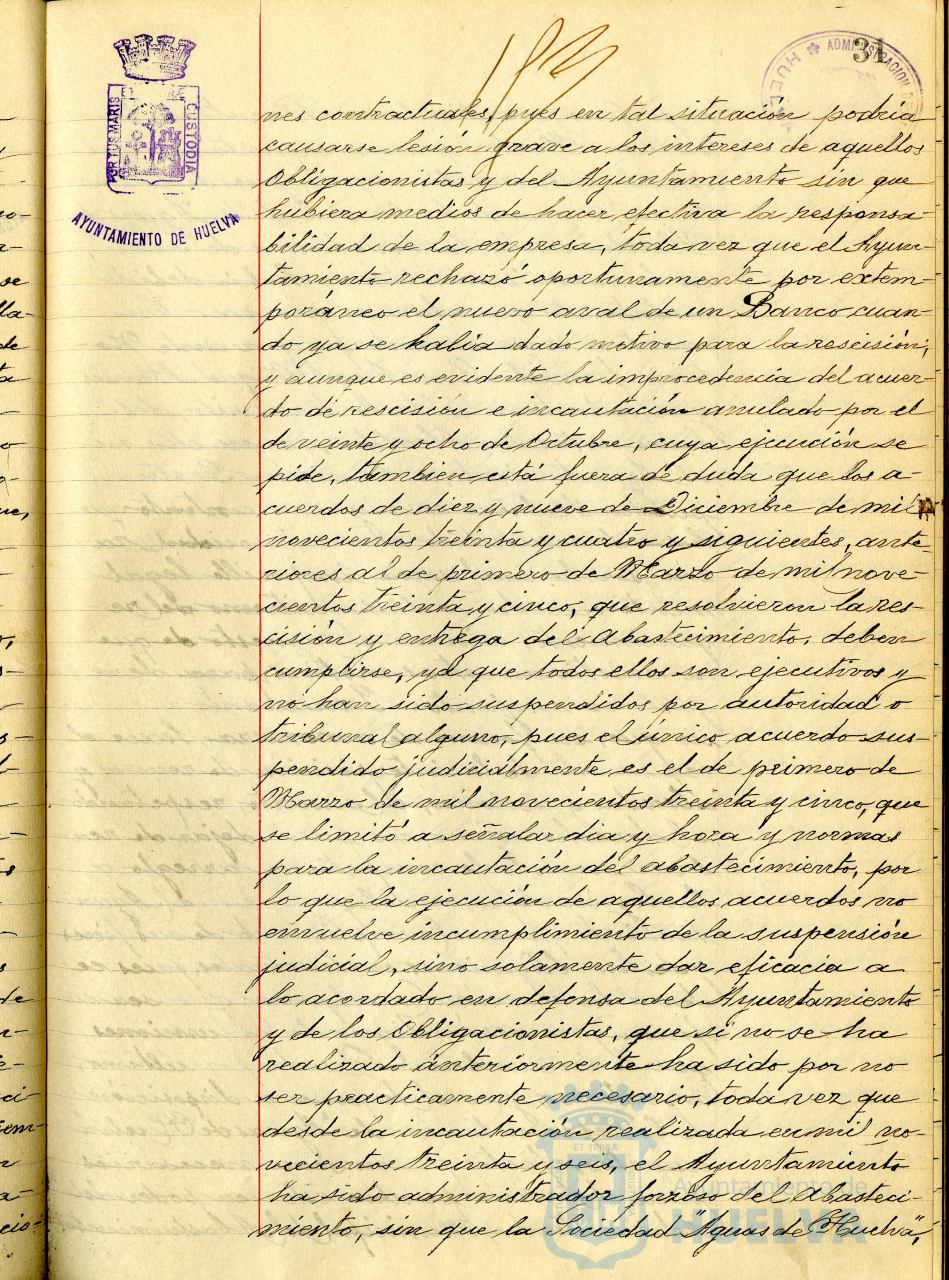 34
PORTUS MARIS ET TERRAE CUSTODIA
AYUNTAMIENTO DE HUELVA
ADMINISTRACION
HUELVA
nes contractuales, pues en tal situación podría
causarse lesión grave a los intereses de aquellos
Obligacionistas y del Ayuntamiento sin que
hubiera medios de hacer efectiva la responsa-
bilidad de la empresa, toda vez que el Ayun-
tamiento rechazó oportunamente por extem-
poráneo el nuevo aval de un Banco cuan-
do ya se había dado motivo para la rescisión,
y aunque es evidente la improcedencia del acuer-
do de rescisión e incautación anulado por el
de veinte y ocho de Octubre, cuya ejecución se
pide, tambien está fuera de duda que los a-
cuerdos de diez y nueve de Diciembre de mil
novecientos treinta y cuatro y siguientes, ante-
riores al de primero de Marzo de mil nove-
cientos treinta y cinco, que resolvieron la res-
cisión y entrega del abastecimiento, deben
cumplirse, ya que todos ellos son ejecutivos y
no han sido suspendidos por autoridad o
tribunal alguno, pues el único acuerdo sus-
pendido judicialmente es el de primero de
Marzo de mil novecientos treinta y cinco, que
se limitó a señalar dia y hora y normas
para la incautación del abastecimiento, por
lo que la ejecución de aquellos acuerdos no
envuelve incumplimiento de la suspensión
judicial, sino solamente dar eficacia a
lo acordado en defensa del Ayuntamiento
y de los Obligacionistas, que si no se ha
realizado anteriormente ha sido por no
ser practicamente necesario, toda vez que
desde la incautación realizada en mil no-
vecientos treinta y seis, el Ayuntamiento
ha sido administrador forzoso del Abasteci-
miento, sin que la Sociedad "Aguas de Huelva",
Ayuntamiento de
HUELVA